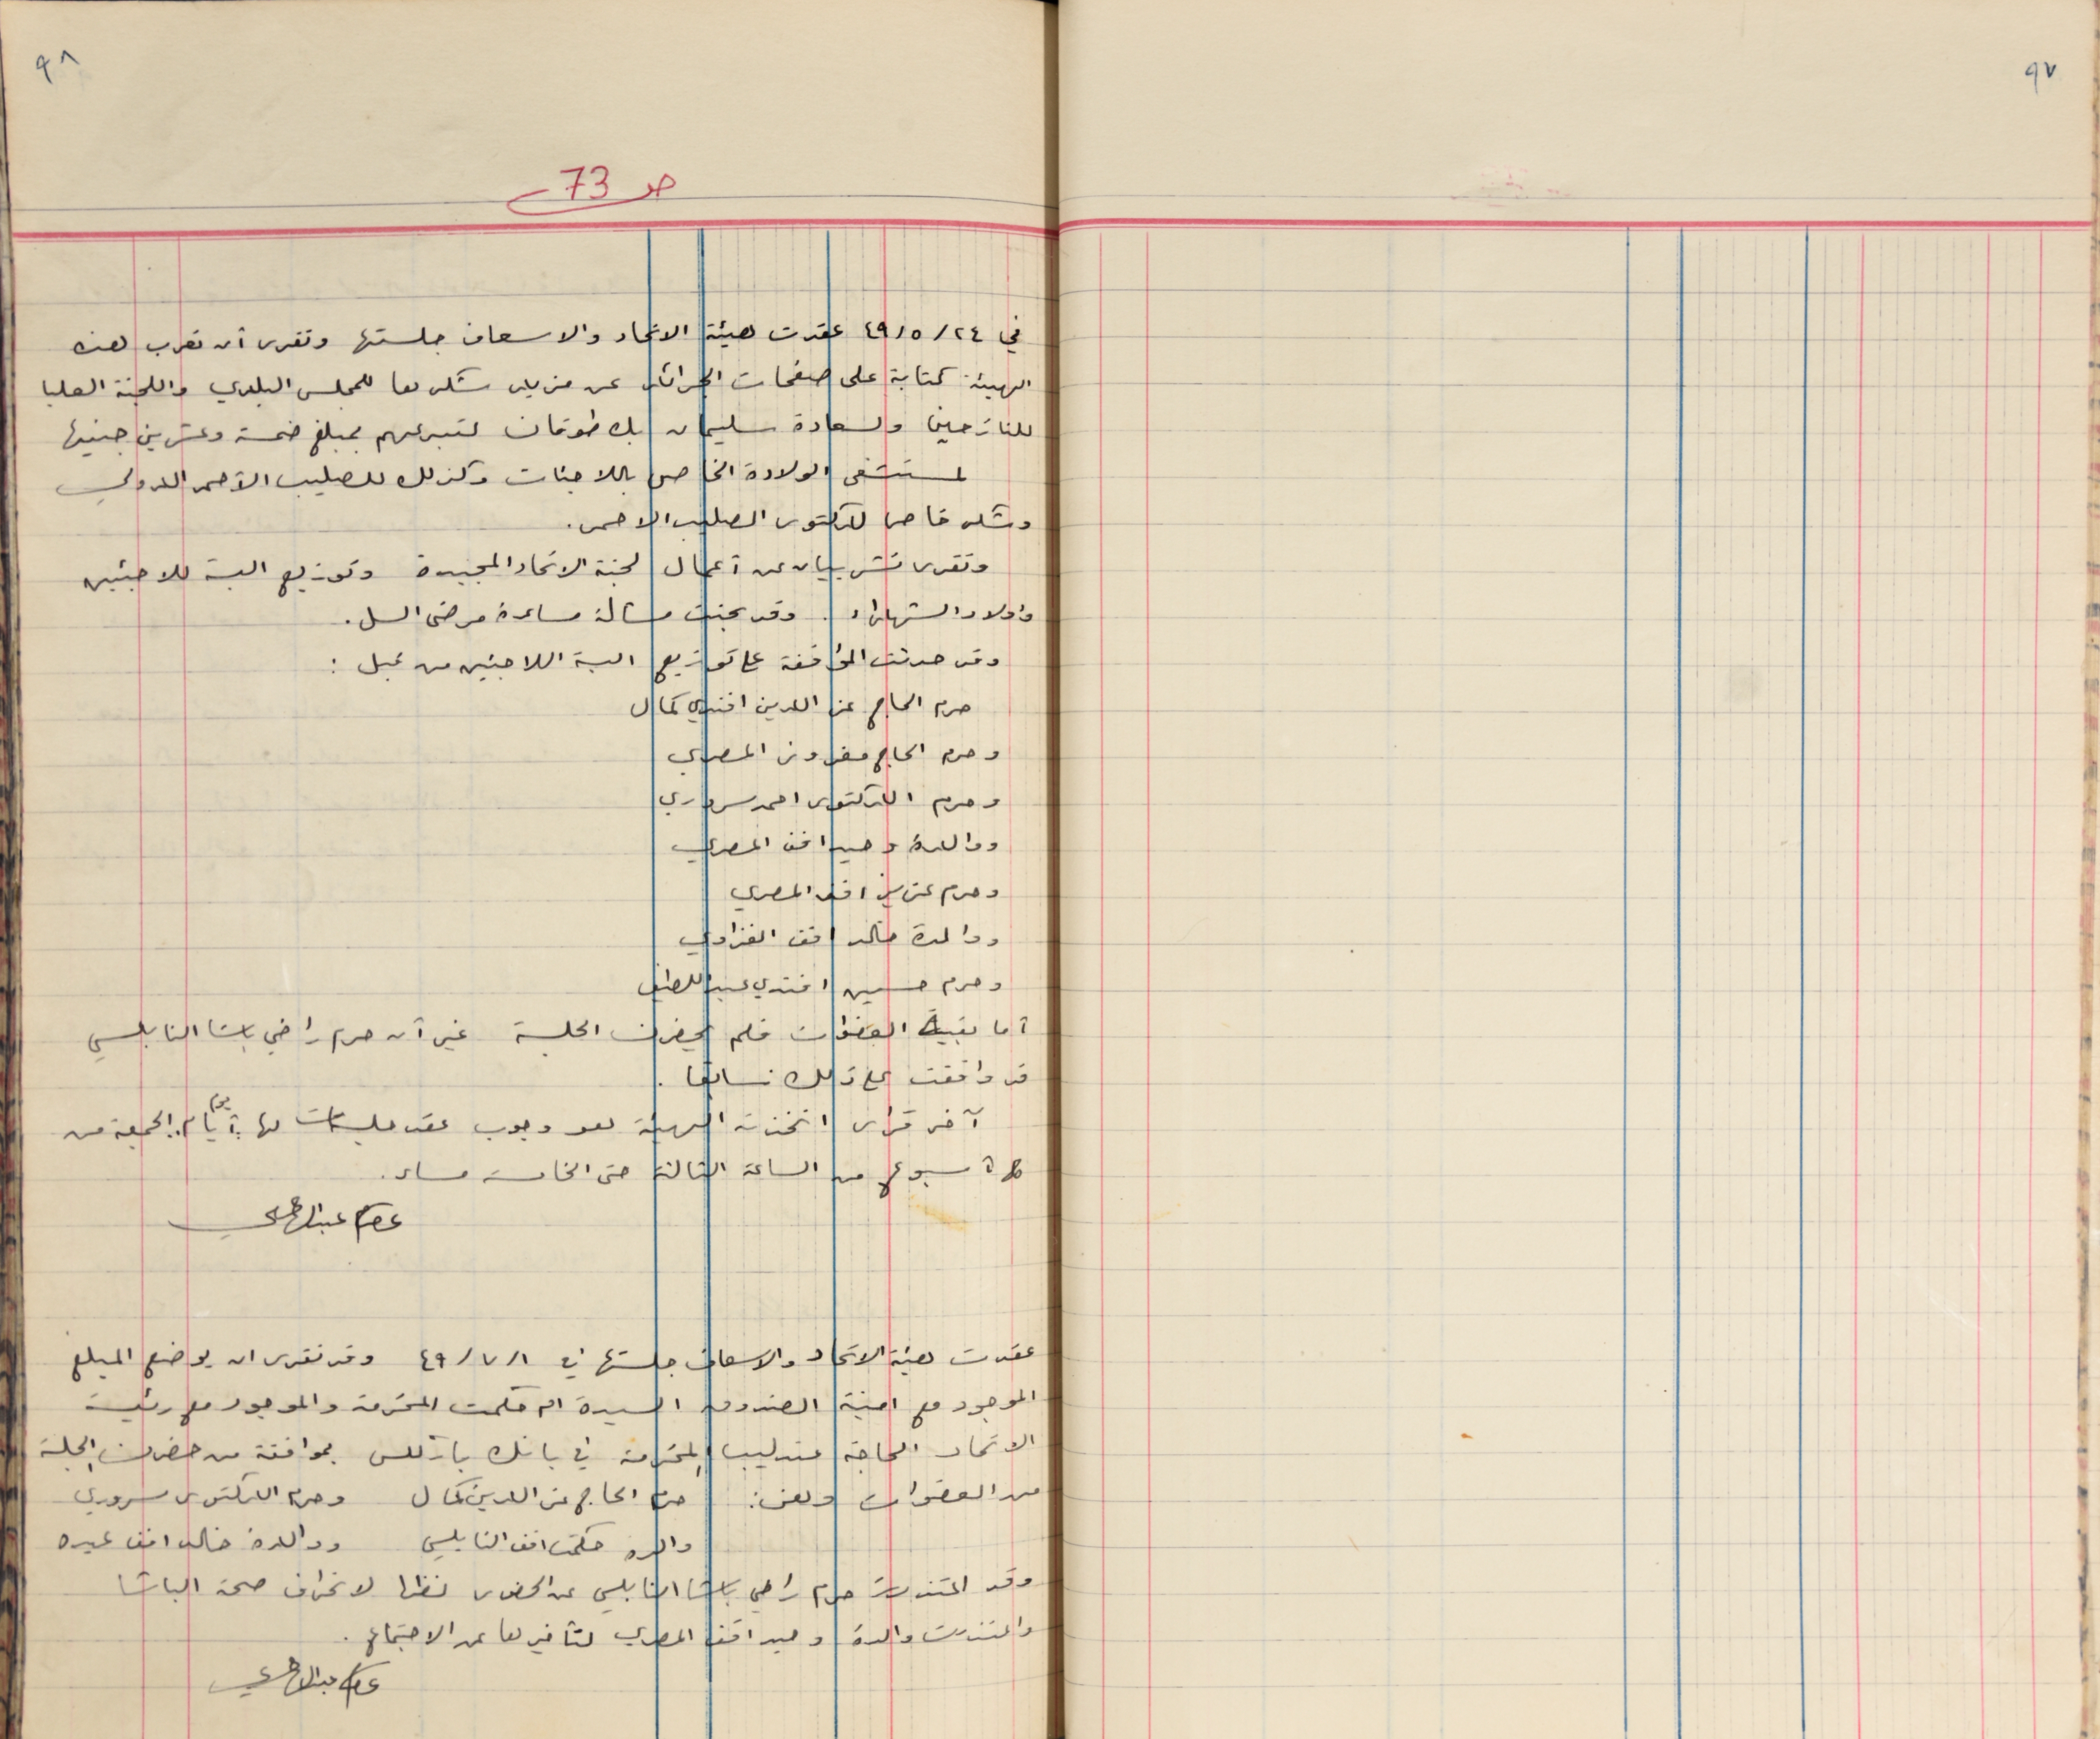 ٩٧
٩٨
صـ 73
في ٢٤/ ٥/ ٤٩ عقدت هيئة الاتحاد والاسعاف جلستها وتقرر أن تعرب هذه
الهيئة كتابة على صفحات الجرائد عن مزيد شكرها للمجلس البلدي واللجنة العليا
للنازحين ولسعادة سليمان بك طوقان لتبرعهم بمبلغ خمسة وعشرين جنيها
لمستشفى الولادة الخاص باللاجئات وكذلك للصليب الأحمر الدولي
وشكر خاص لدكتور الصليب الاحمر.
وتقرر نشر بيان عن أعمال لجنة الاتحاد المجيدة وتوزيع البسة للاجئين
واولاد الشهداء. وقد بحثت مسألة مساعدة مرضى السل.
وقد حدثت الموافقة على توزيع البسة اللاجئين من قبل :
حرم الحاج عز الدين افندي كمال
وحرم الحاج معزوز المصري
وحرم الدكتور احمد سروري
ووالدة وحيد افند المصري
وحرم عزيز افند المصري
ووالدة خالد افند الغزاوي
وحرم حسين افندي عبد اللطيف
أما بقية العضوات فلم يحضرن الجلسة غير أن حرم راضي باشا النابلسي
قد وافقت على ذلك سابقا.
آخر قرار اتخذته الهيئة هو وجوب عقد جلسات لها أيام يوم الجمعة من
كل أسبوع من الساعة الثالثة حتى الخامسة مساء.
عصام عبد الهادي
عقدت هيئة الاتحاد والاسعاف جلستها في ١/ ٧/ ٤٩ وقد تقرر ان يوضع المبلغ
الموجود مع امينة الصندوق السيدة ام حكمت المحترمة والموجود مع رئيسة
الاتحاد الحاجة عندليب المحترمة في بانك باركلس بموافقة من حضرن الجلسة
من العضوات وهن: حرم الحاج عز الدين كمال وحرم الدكتور سروري
والده حكمت افند النابلسي ووالدة خالد افند عبده
وقد اعتذرت حرم راضي باشا النابلسي عن الحضور نظرا لانحراف صحة الباشا
واعتذرت والدة وحيد افند المصري لتأخيرها عن الاجتماع.
عصام عبد الهادي